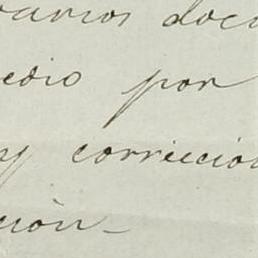 varios docu
edio por
y correccion
ción_